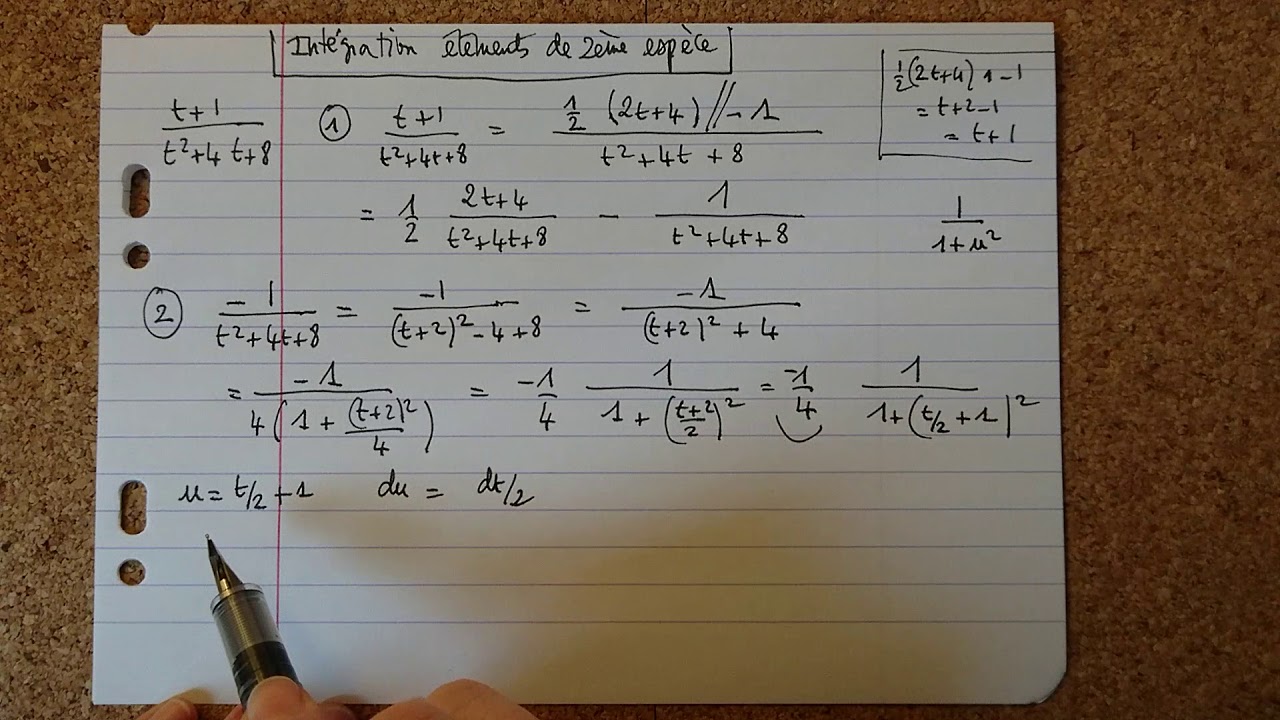 Intégration élements de 2ème espèce
(t+1)/(t²+4t+8) ① (t+1)/(t²+4t+8) = (1/2 (2t+4) // - 1)/(t²+4t+8)
1/2(2t+4) 1-1
= t+2-1
= t+1
= 1/2 (2t+4)/(t²+4t+8) - 1/(t²+4t+8)
1/(1+u²)
② -1/(t²+4t+8) = -1/((t+2)²-4+8) = -1/((t+2)²+4)
= -1/(4(1+(t+2)²/4)) = -1/4 1/(1+((t+2)/2)²) = -1/4 1/(1+(t/2+1)²)
u = t/2+1 du = dt/2